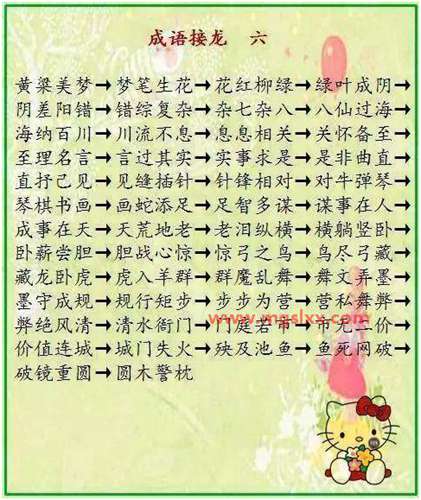 成语接龙 六
黄粱美梦→梦笔生花→花红柳绿→绿叶成阴→
阴差阳错→错综复杂→杂七杂八→八仙过海→
海纳百川→川流不息→息息相关→关怀备至→
至理名言→言过其实→实事求是→是非曲直→
直抒己见→见缝插针→针锋相对→对牛弹琴→
琴棋书画→画蛇添足→足智多谋→谋事在人→
成事在天→天荒地老→老泪纵横→横躺竖卧→
卧薪尝胆→胆战心惊→惊弓之鸟→鸟尽弓藏→
藏龙卧虎→虎入羊群→群魔乱舞→舞文弄墨→
墨守成规→规行矩步→步步为营→营私舞弊→
www.mgslxx.com
弊绝风清→清水衙门→门庭若市→市无二价→
价值连城→城门失火→殃及池鱼→鱼死网破→
破镜重圆→圆木警枕